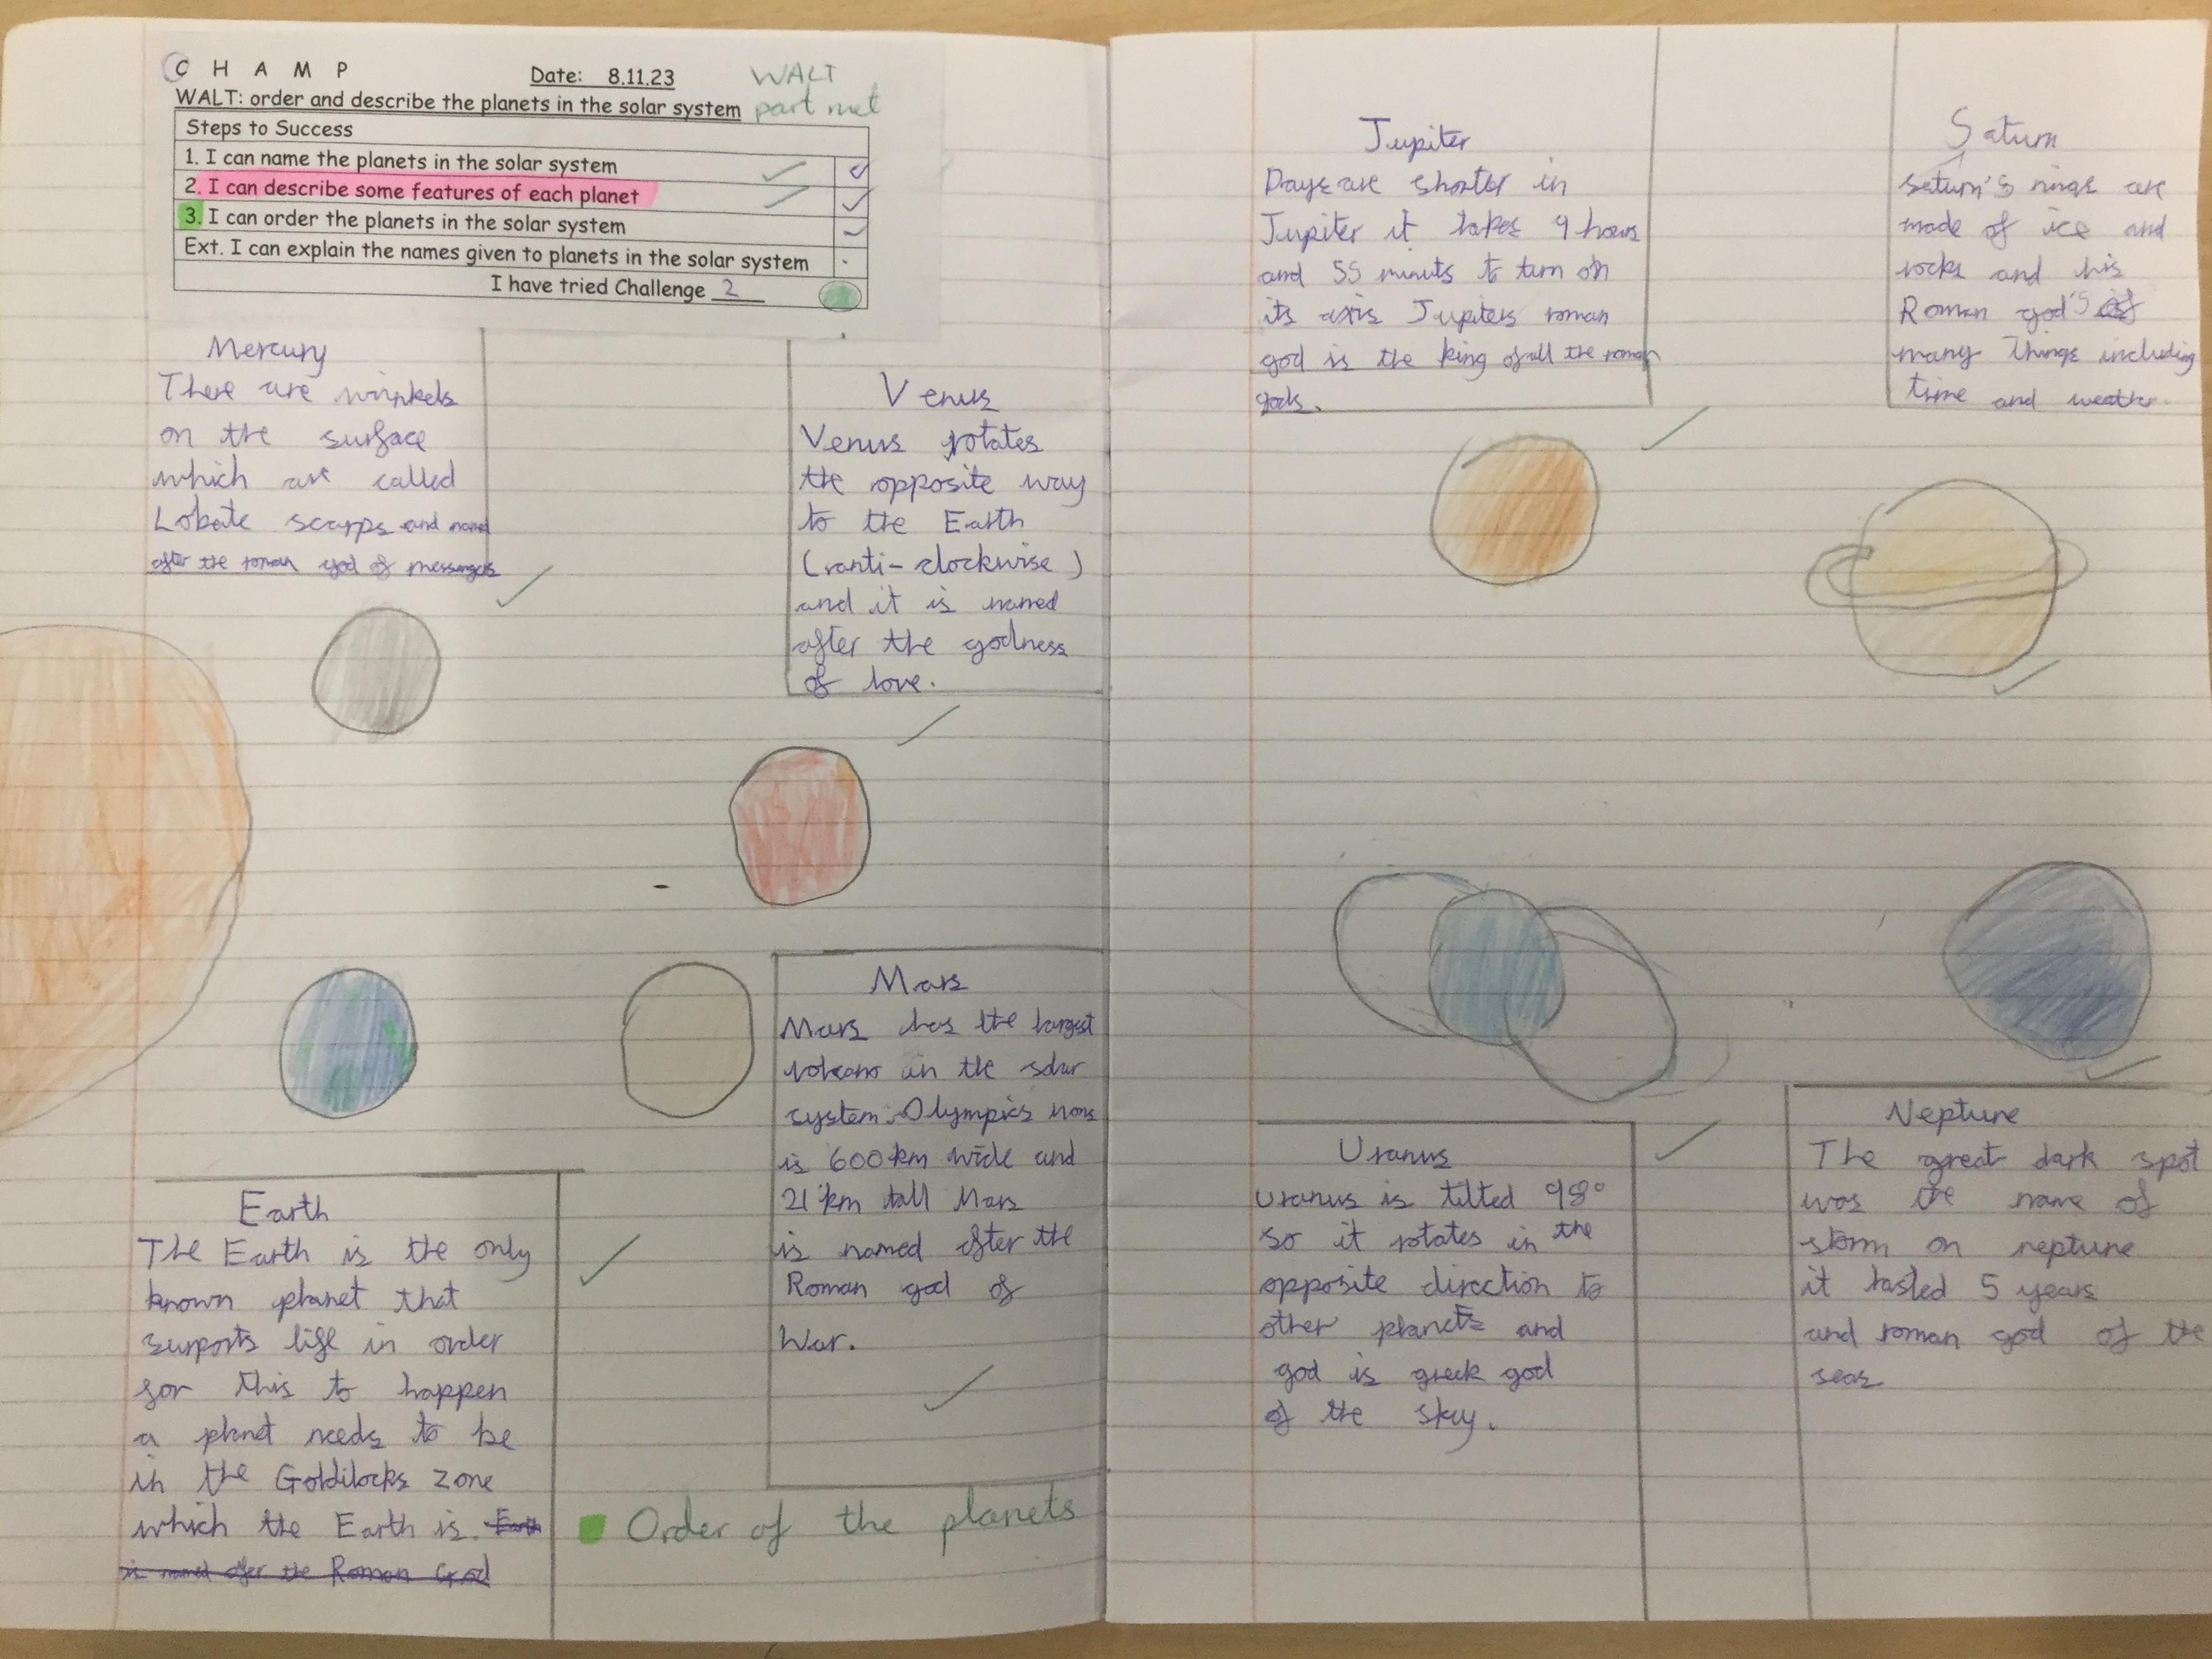 C H A M P
Date: 8.11.23
WALT
part met
WALT: order and describe the planets in the solar system
Steps to Success
1. I can name the planets in the solar system
2. I can describe some features of each planet
3. I can order the planets in the solar system
Ext. I can explain the names given to planets in the solar system
I have tried Challenge 2
Mercury
There are wrinkels
on the surface
which are called
Lobate scarps and named
after the roman god of messengers
Venus
Venus rotates
the opposite way
to the Earth
(anti-clockwise)
and it is named
after the godness
of love.
Earth
The Earth is the only
known planet that
surports life in order
for this to happen
a planet needs to be
in the Goldilocks zone
which the Earth is. Earth
is named after the Roman God
Mars
Mars has the largest
volcano in the solar
system. Olympics mons
is 600km wide and
21 km tall Mars
is named after the
Roman god of
War.
Order of the planets
Jupiter
Days are shorter in
Jupiter it takes 9 hours
and 55 minuts to turn on
its axis Jupiters roman
god is the king of all the roman
gods.
Saturn
Saturn's rings are
made of ice and
rocks and his
Roman god's of
many Things including
time and weather.
Uranus
Uranus is tilted 98°
so it rotates in the
opposite direction to
other planets and
god is greek god
of the sky.
Neptune
The great dark spot
was the name of
storm on neptune
it lasted 5 years
and roman god of the
seas